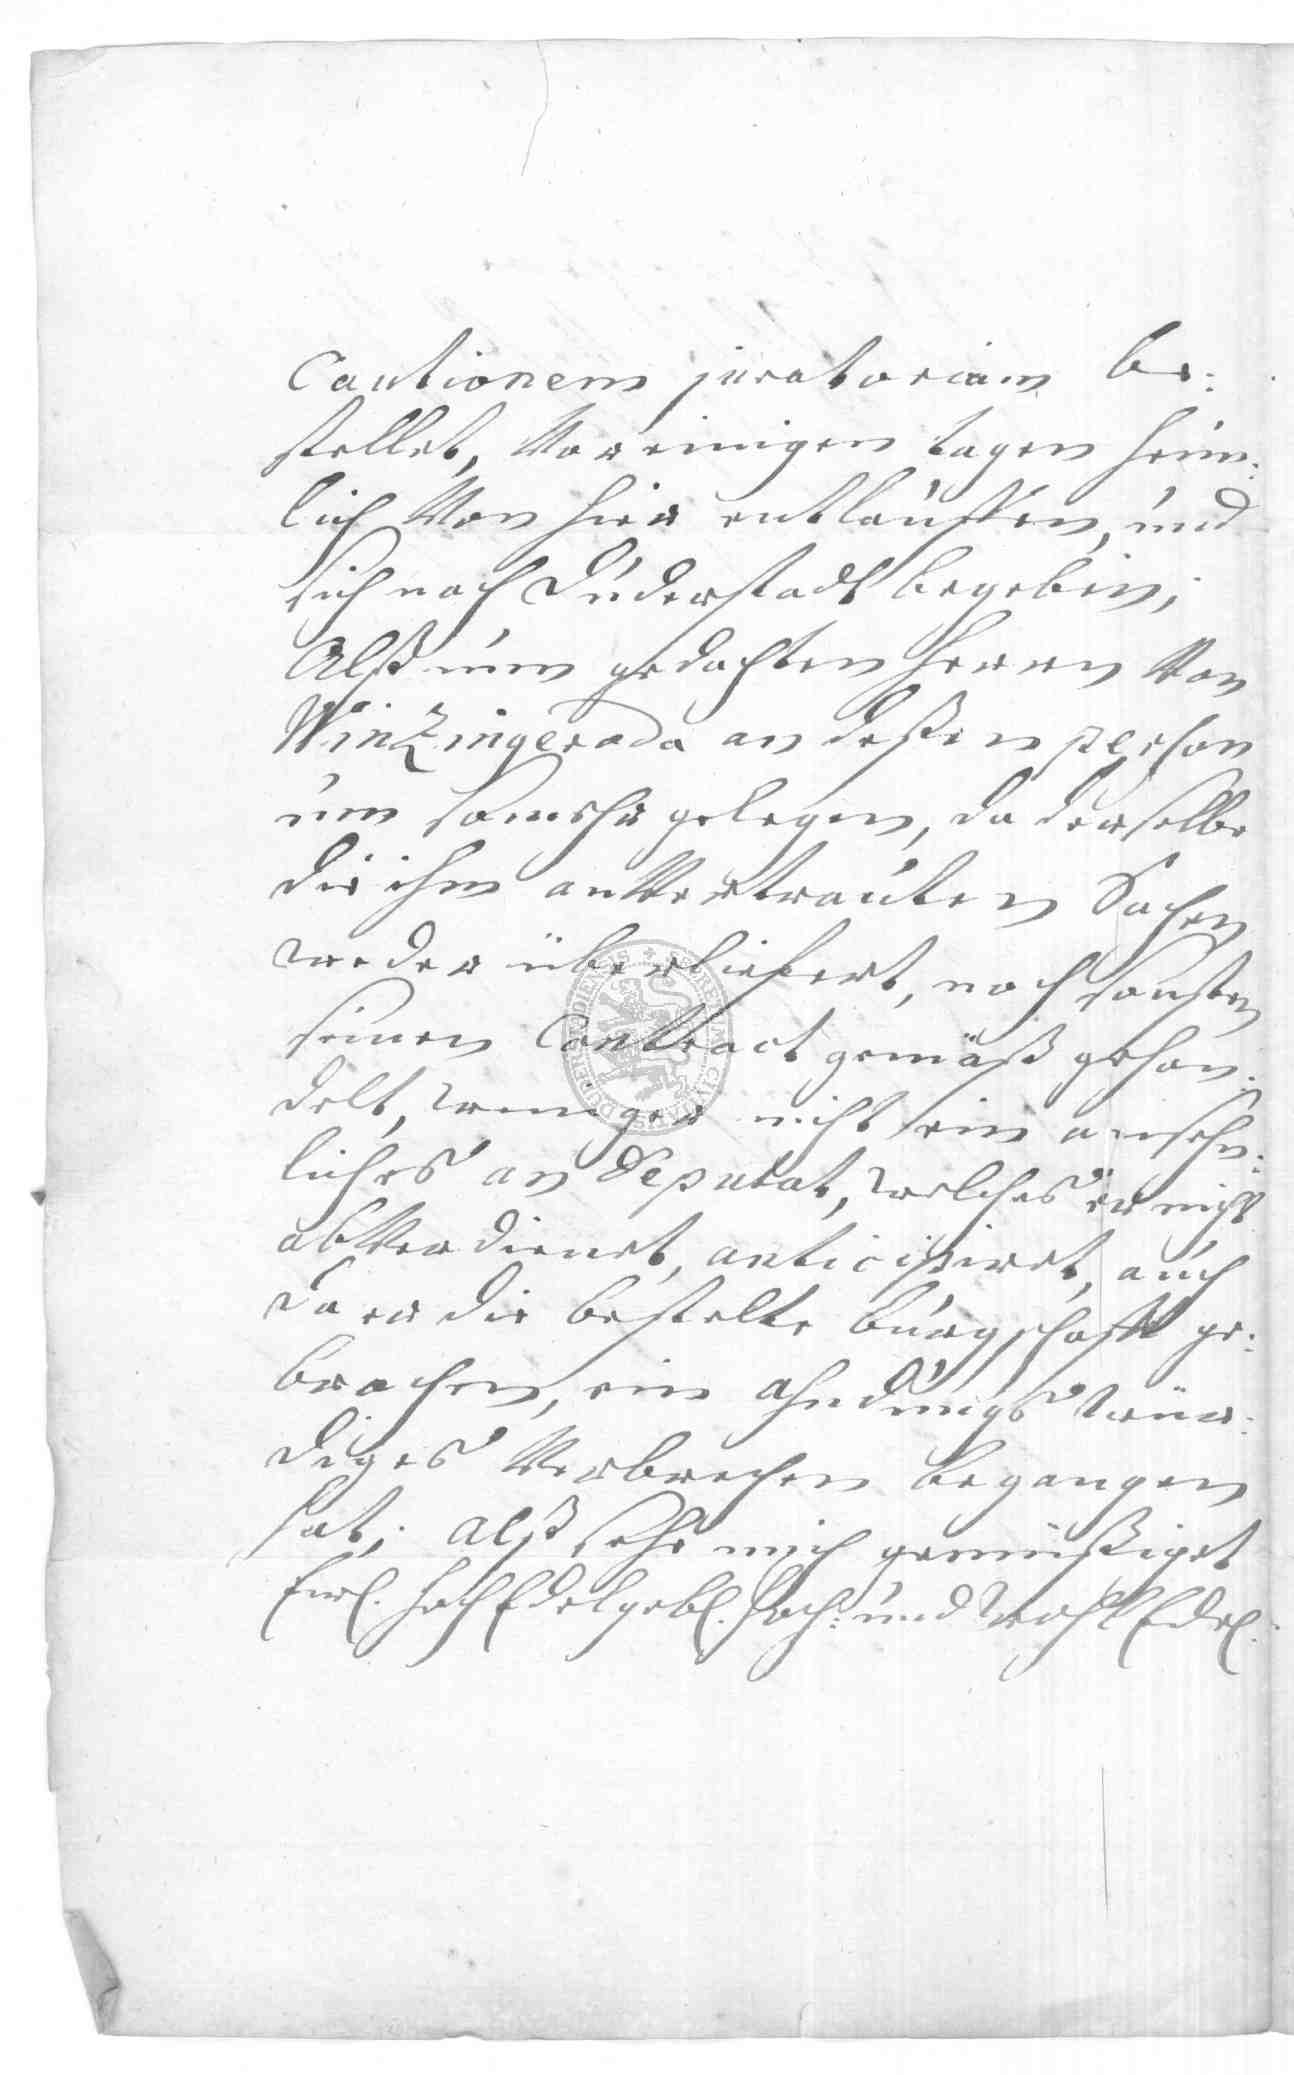 Cautionem juratoriam be:
stellet, Vor einigen tagen heim:
lich Von hier entlauffen, und
sich nach Duderstadt begeben;
Alß nun gedachten Herren Von
Winzingeroda an deßen person
um so mehr gelegen, da derselbe
die ihm anVertrauten Sachen
weder überliefert, noch sonsten
seinen Contract gemäß gehan:
delt, weniger nicht ein ansehn:
liches an Deputat, welches er nicht
abVerdienet, anticipiret, auch
da er die bestelte bürgschafft ge:
brochen, ein ahndungs wür:
diges Verbrechen begangen
hat; alß sehe mich gemüßiget
Ewl. HochEdelgebl. Hoch: und WohlEdl.